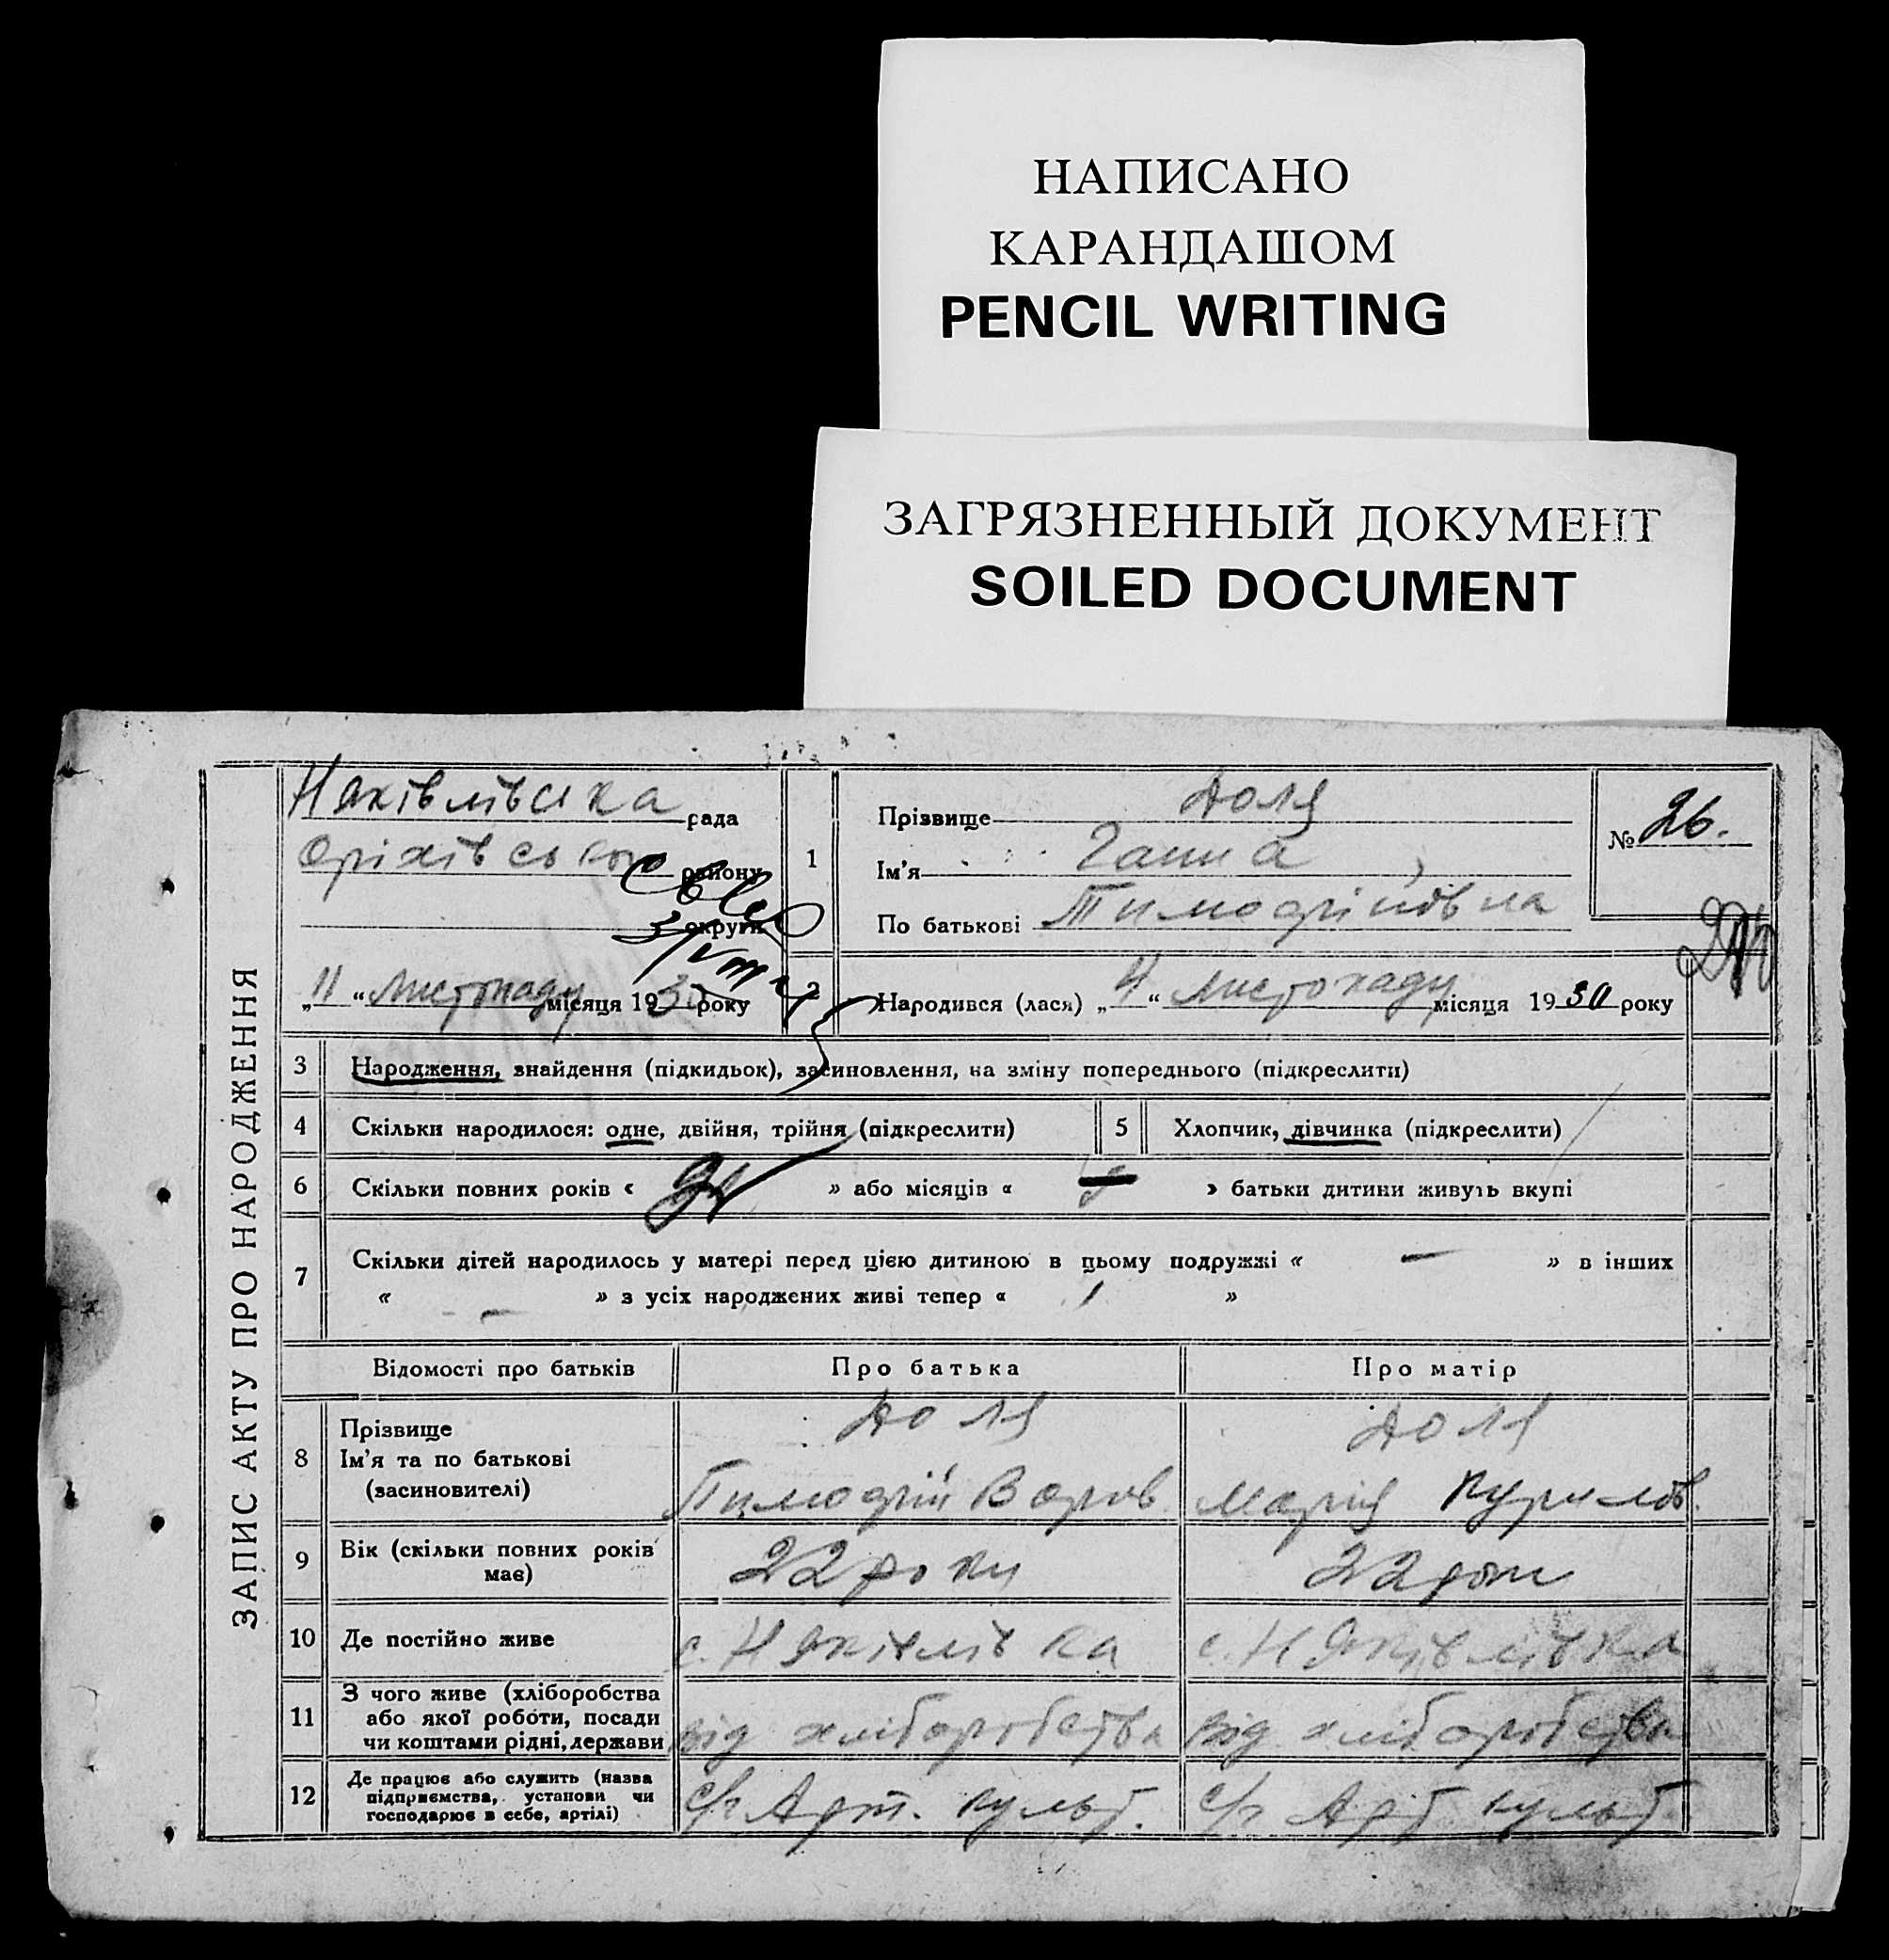 НАПИСАНО
КАРАНДАШОМ
PENCIL WRITING
ЗАГРЯЗНЕННЫЙ ДОКУМЕНТ
SOILED DOCUMENT
ЗАПИС АКТУ ПРО НАРОДЖЕННЯ
рада
Оріхівського району
округи
„11“ Листопаду місяця 1930 року
1
Прізвище Доля
Ім'я Ганна
По батькові Тимофіївна
№ 26.
2
Народився (лася) „4“ Листопаду місяця 1930 року
3 Народження, знайдення (підкидьок), засиновлення, на зміну попереднього (підкреслити)
4 Скільки народилося: одне, двійня, трійня (підкреслити) 5 Хлопчик, дівчинка (підкреслити)
6 Скільки повних років « » або місяців « » батьки дитини живуть вкупі
7 Скільки дітей народилось у матері перед цією дитиною в цьому подружжі « — » в інших
« — » з усіх народжених живі тепер « 1 »
Відомості про батьків Про батька Про матір
8 Прізвище Доля Доля
Ім'я та по батькові
(засиновителі) Тимофій Марія Курилов.
9 Вік (скільки повних років 22 роки 22 роки
має)
10 Де постійно живе с. Н Яківлівка с. Н Яківлівка
11 З чого живе (хліборобства
або якої роботи, посади
чи коштами рідні, держави від хліборобства від хліборобства
12 Де працює або служить (назва
підприємства, установи чи
господарює в себе, артілі) с/г Арт. культ. с/г Арт культ.